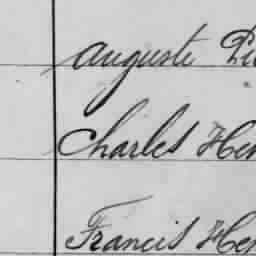 Auguste
Charles Hen
Francis Hen